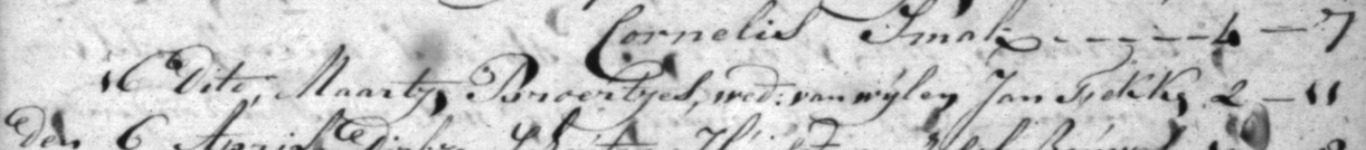 Cornelis Smak - - - - - 4 - 7
16 Dito, Maartje Broertjes, wed: van wijlen Jan Fekkes 2 - 11
Den 6 April